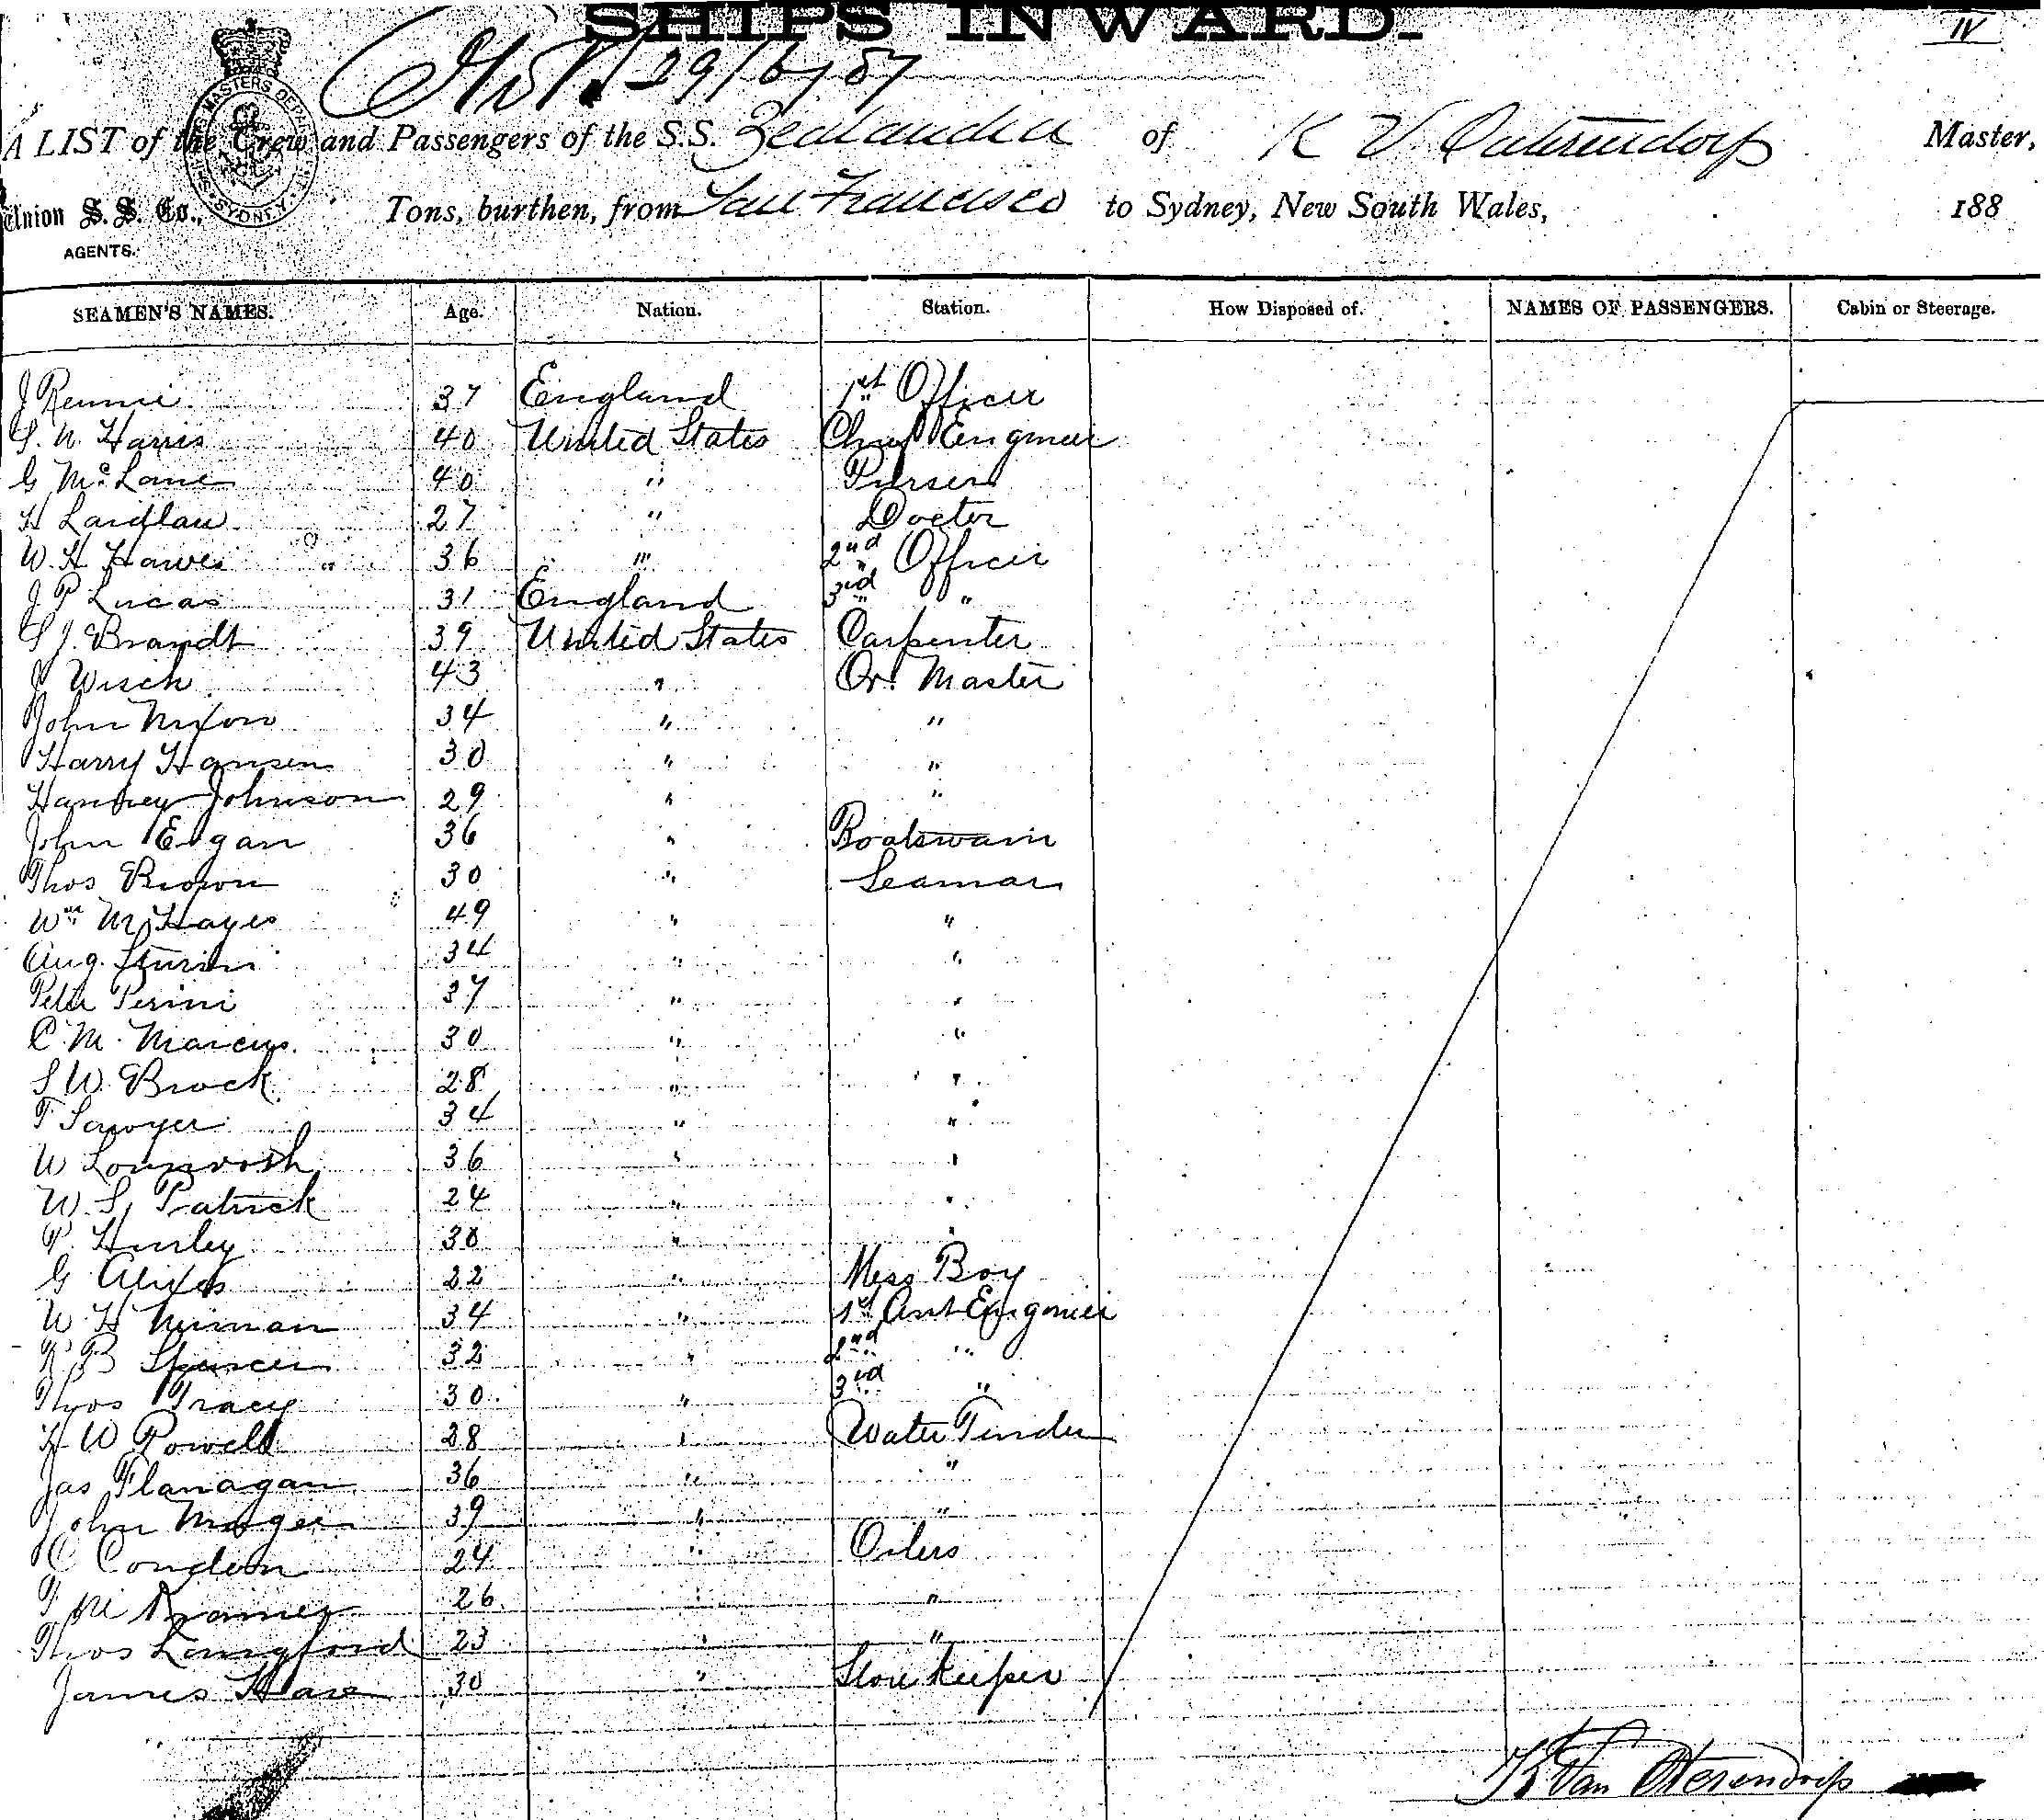 SHIPS INWARD.
IV
29/6/87
A LIST of the Crew and Passengers of the S.S. Zealandia of K V. Oaterendorp Master,
Union S. S. Co., Tons, burthen, from San Francisco to Sydney, New South Wales, 188
AGENTS.
SEAMEN'S NAMES. Age. Nation. Station. How Disposed of. NAMES OF PASSENGERS. Cabin or Steerage.
J Rennie 37 England 1st Officer
S. N. Harris 40 United States Chief Engineer
G McLane 40 " Purser
H Laidlaw 27 " Doctor
W. H Hawes 36 " 2nd Officer
J P Lucas 31 England 3rd "
S J. Brandt 39 United States Carpenter
J Wisch 43 " Qr. Master
John Nixon 34 " "
Harry Hansen 30 " "
Harvey Johnson 29 " "
John Egan 36 " Boatswain
Thos Brown 30 " Seaman
Wm Hayes 49 " "
Aug. 34 " "
Peter Perini 37 " "
C. M. Marcus 30 " "
S W. Brock 28 " "
F Sawyer 34 " "
W 36 " "
W. S. Patrick 24 " "
P. Hurley 30 " "
G 22 " Mess Boy
W. H Mirnan 34 " 1st Asst Engineer
R B Spencer 32 " 2nd "
Thos Tracy 30 " 3rd "
H W Powell 28 " Water Tender
Jas Flanagan 36 " "
John Mager 39 " "
C Condon 24 " Oilers
F. M Kramer 26 " "
Thos Langford 23 " "
James Hare 30 " Store Keeper
Van Oterendorp